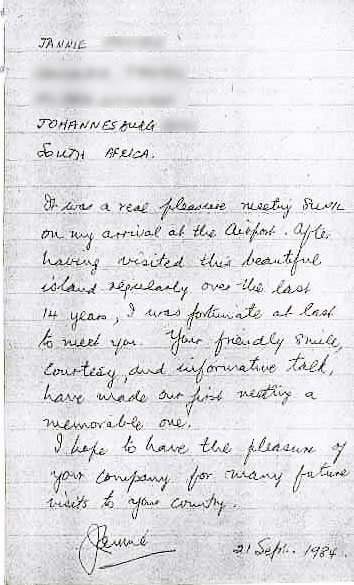 JANNIE
JOHANNESBURG
SOUTH AFRICA.
It was a real pleasure meeting
on my arrival at the Airport. After
having visited this beautiful
island regularly over the last
14 years, I was fortunate at last
to meet you. Your friendly smile,
courtesy, and informative talk,
have made our first meeting a
memorable one.
I hope to have the pleasure of
your company for many future
visits to your country.
Jannie
21 Sept. 1984.